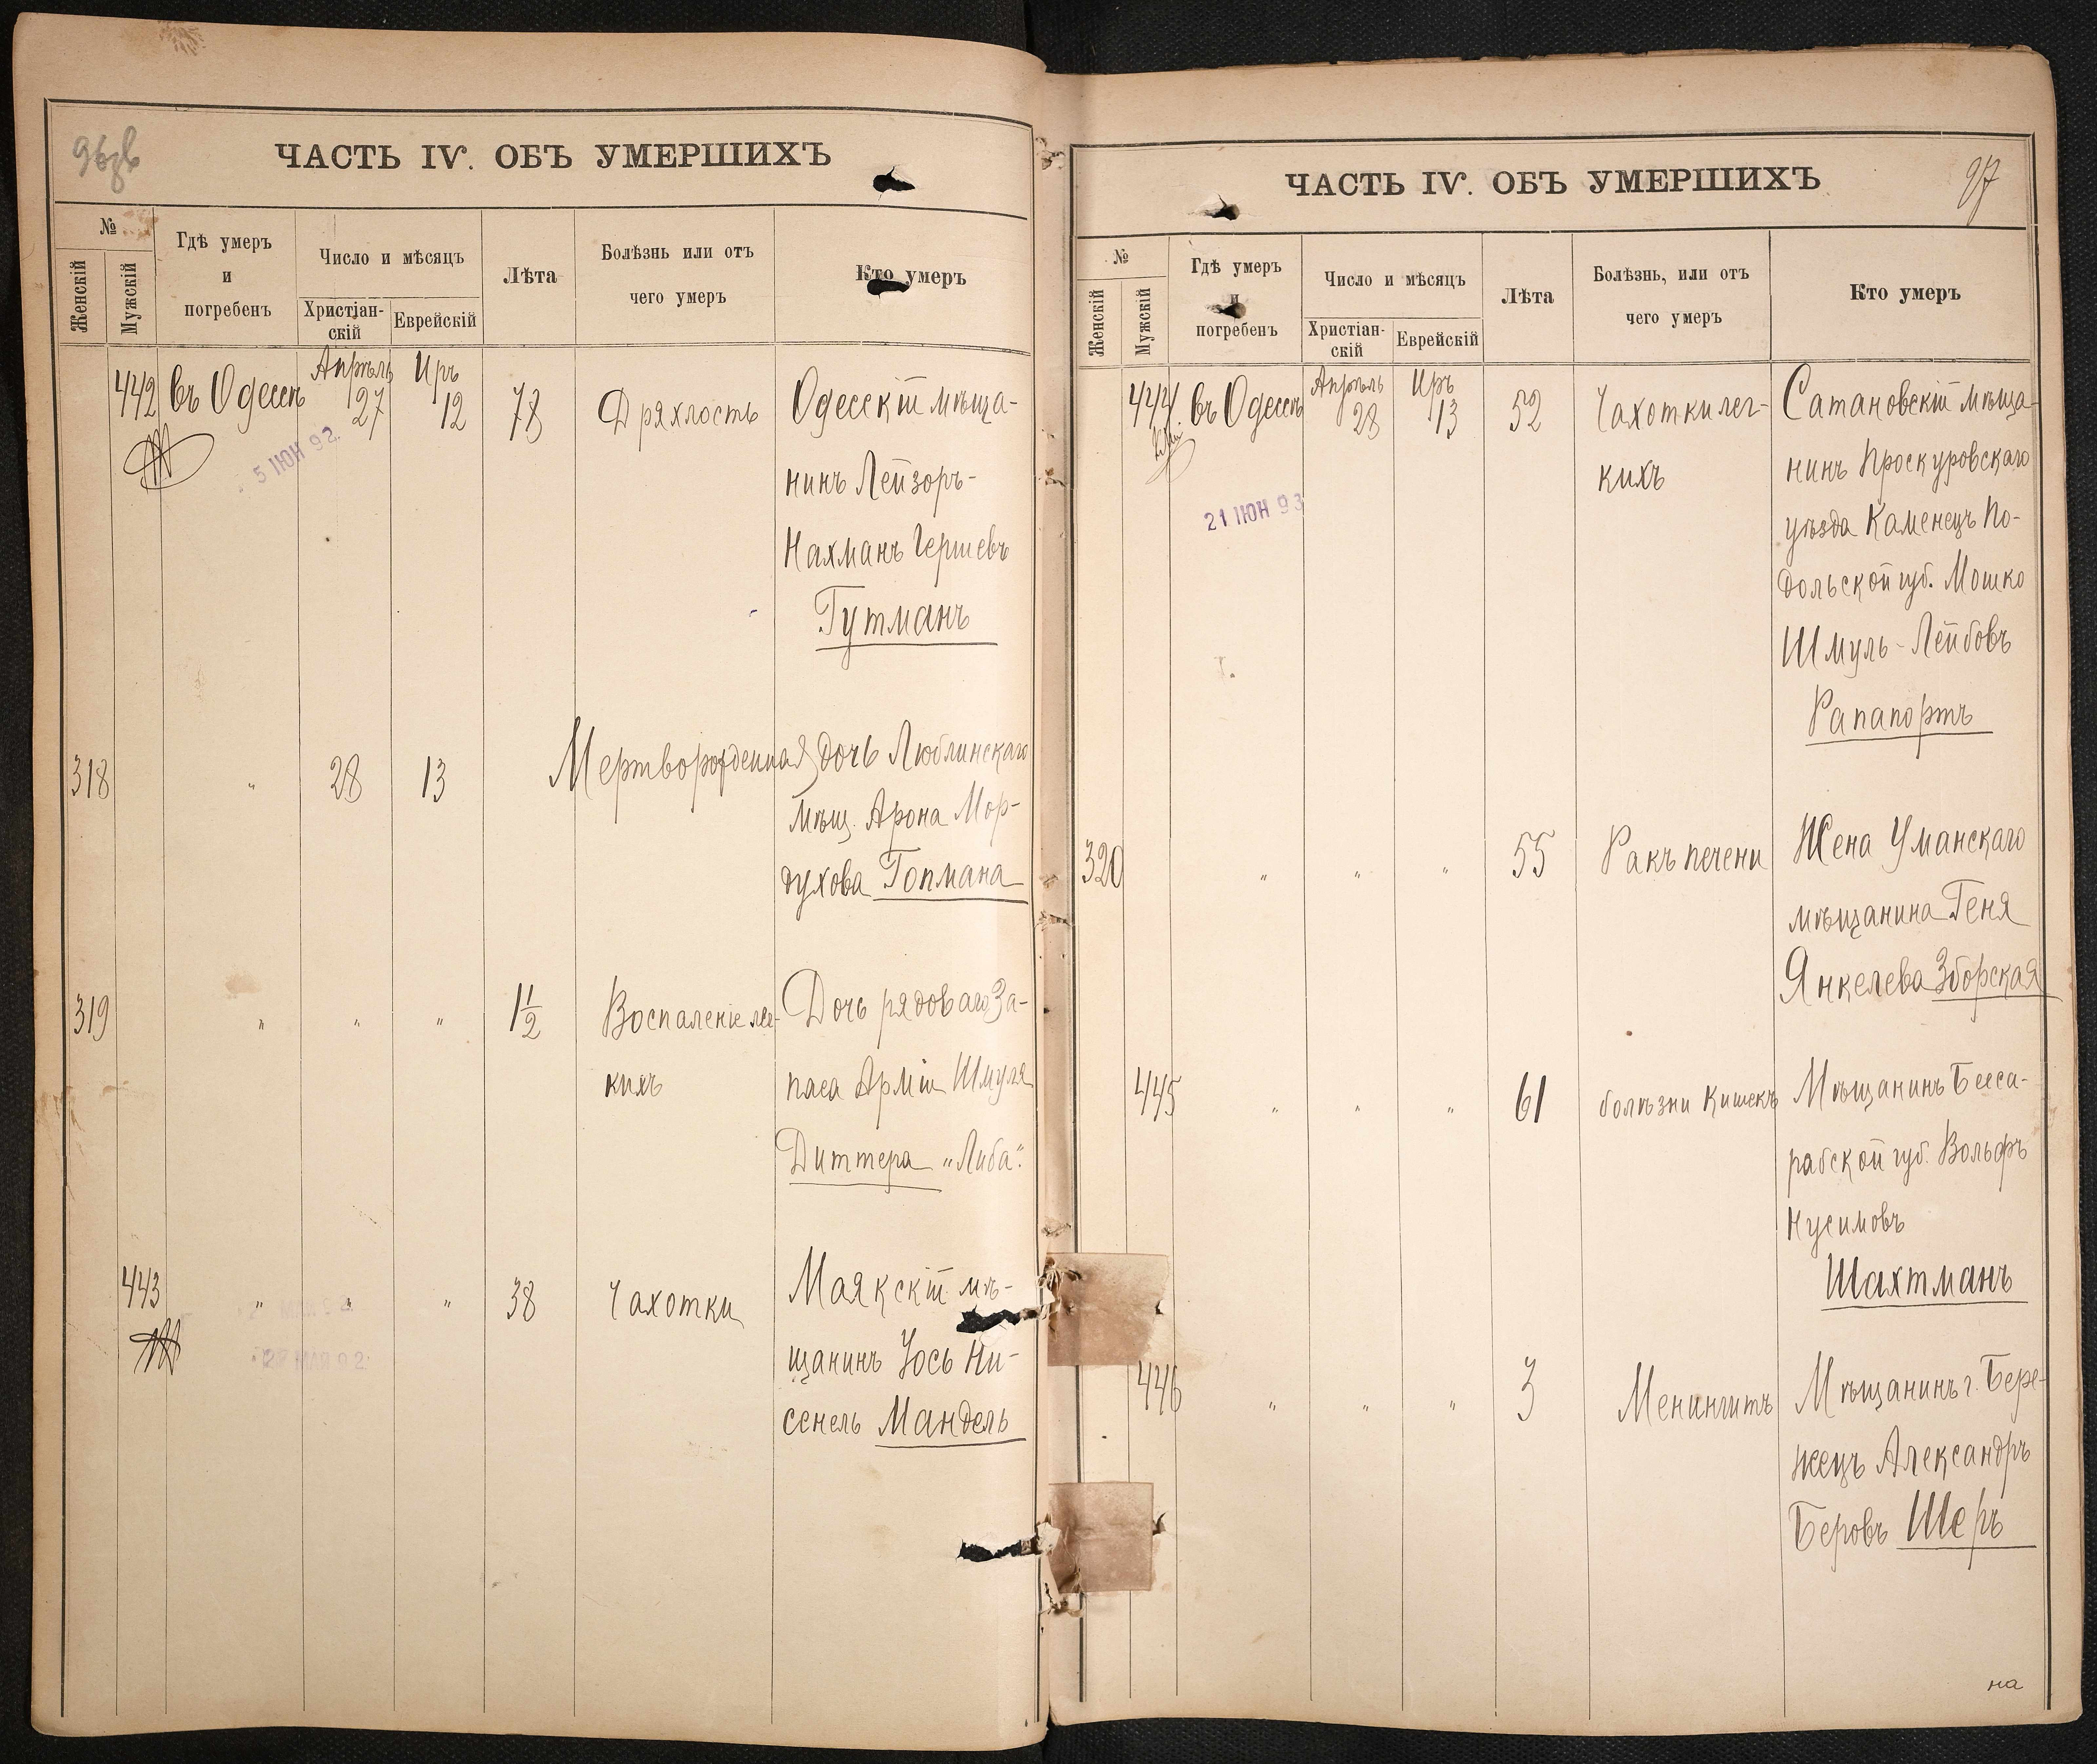 96зв
ЧАСТЬ IV. ОБЪ УМЕРШИХЪ
№
Женскій
Мужскій
Гдѣ умеръ
и
погребенъ
Число и мѣсяцъ
Христіан-
скій
Еврейскій
Лѣта
Болѣзнь или отъ
чего умеръ
Кто умеръ
442 въ Одессѣ Апрѣль 27 Иръ 12 78 Дряхлость Одесскій мѣща-
5 ІЮН 92.
нинъ Лейзоръ-
Нахманъ Гершевъ
Гутманъ
318 " 28 13 Мертворожденная дочь Люблинскаго
мѣщ. Арона Мор-
духова Гопмана
319 " " " 1 1/2 Воспаленіе лег- Дочь рядоваго За-
кихъ паса Арміи Шмуля
Диттера „Либа“.
443 " " " 38 Чахотки Маякскій мѣ-
МАЯ 92
щанинъ Іось Ни-
сенель Мандель
97
ЧАСТЬ IV. ОБЪ УМЕРШИХЪ
№
Женскій
Мужскій
Гдѣ умеръ
и
погребенъ
Число и мѣсяцъ
Христіан-
скій
Еврейскій
Лѣта
Болѣзнь, или отъ
чего умеръ
Кто умеръ
444 въ Одессѣ Апрѣль 28 Иръ 13 52 Чахотки лег- Сатановскій мѣща-
кихъ нинъ Проскуровскаго
21 ІЮН 93
уѣзда Каменецъ По-
дольской губ. Мошко
Шмуль-Лейбовъ
Рапапортъ
320 " " " 55 Ракъ печени Жена Уманскаго
мѣщанина Геня
Янкелева Зборская
445 " " " 61 болѣзни кишекъ Мѣщанинъ Бесса-
рабской губ. Вольфъ
Нусимовъ
Шахтманъ
446 " " " 3 Менингитъ Мѣщанинъ г. Бере-
жецъ Александръ
Беровъ Шеръ
на